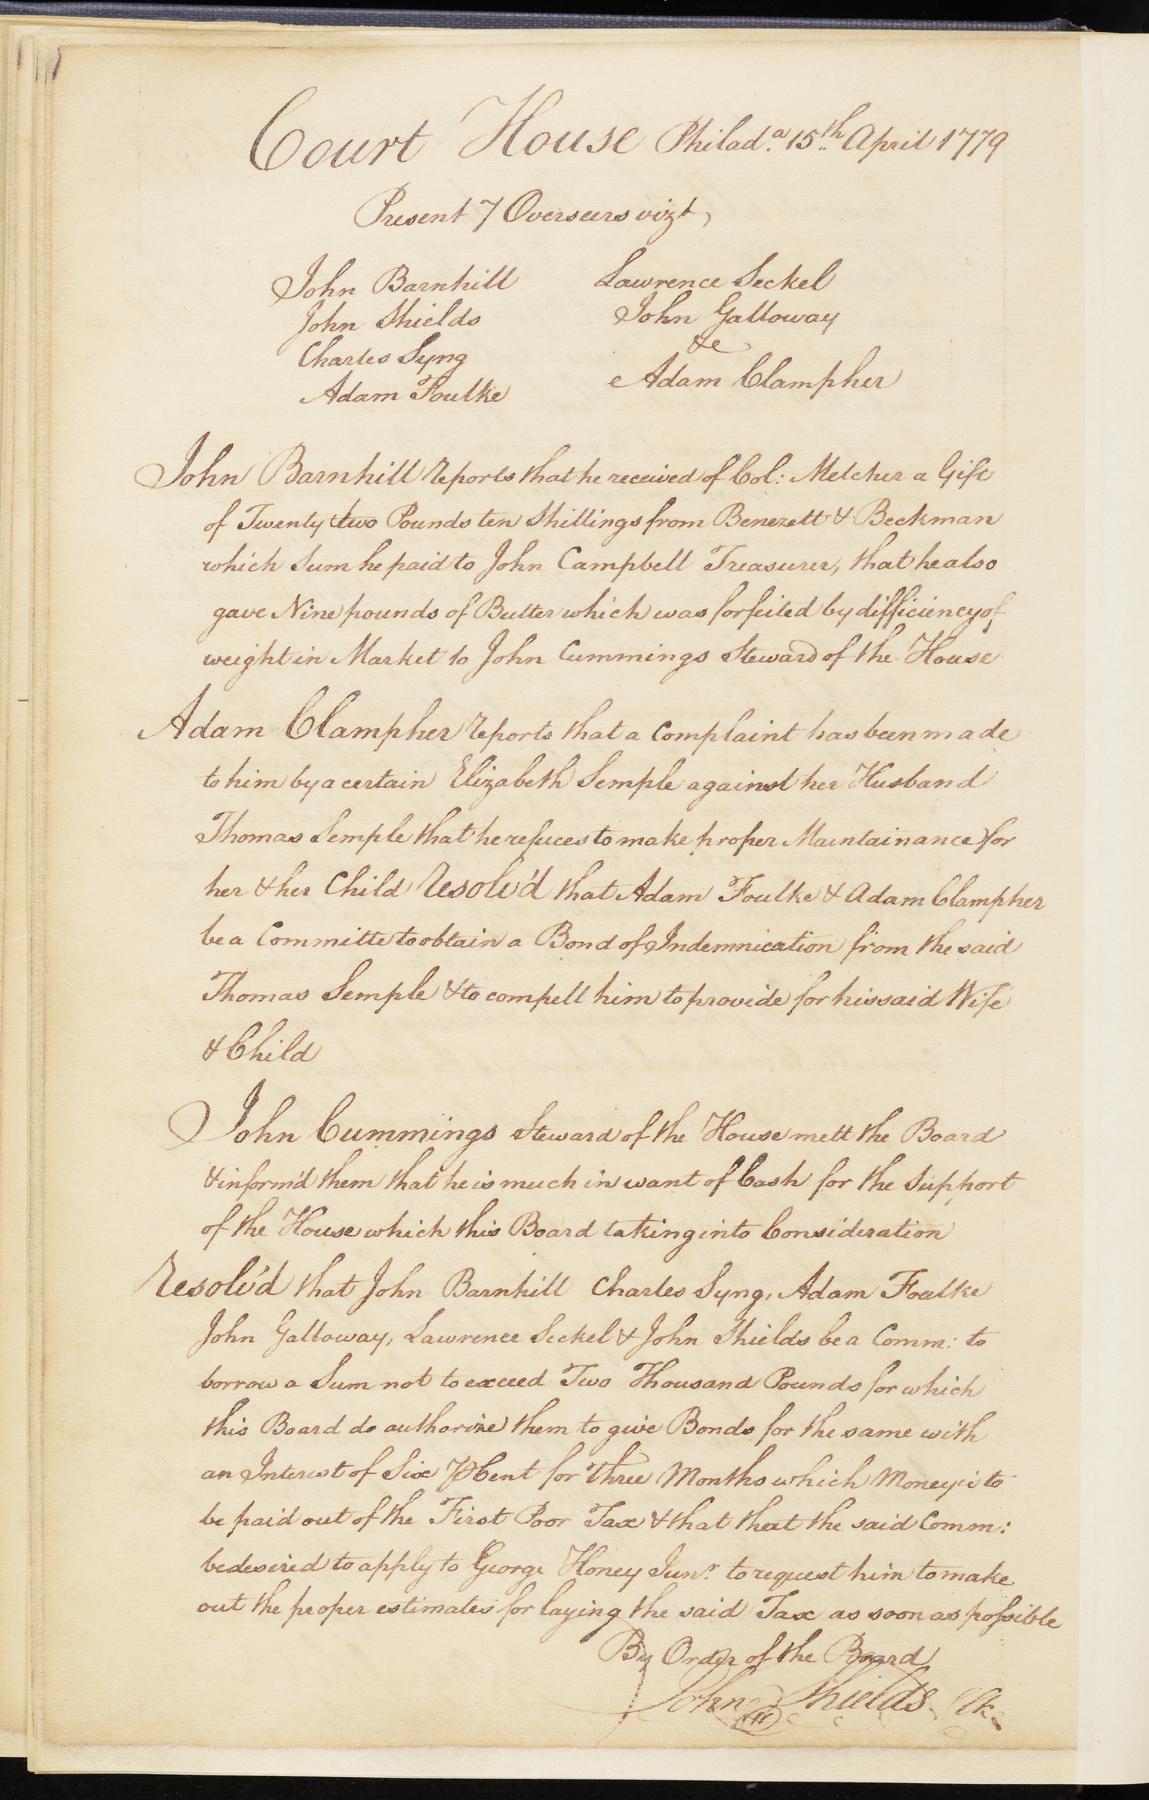 Court House Philad.a 15.th April 1779
Present 7 Overseers vizt,
John Barnhill Lawrence Seckel
John Shields John Galloway
Charles Syng &c
Adam Foulke Adam Clampher
John Barnhill reports that he received of Col: Melcher a Gift
of Twenty two Pounds ten Shillings from Benezett & Beckman
which Sum he paid to John Campbell Treasurer, that he also
gave Nine pounds of Butter which was forfeited by difficiency of
weight in Market to John Cummings Steward of the House
Adam Clampher reports that a Complaint has been made
to him by a certain Elizabeth Semple against her Husband
Thomas Semple that he refuces to make proper Maintainance for
her & her Child Resolv'd that Adam Foulke & Adam Clampher
be a Committe to obtain a Bond of Indemnication from the said
Thomas Semple & to compell him to provide for his said Wife
& Child
John Cummings Steward of the House mett the Board
& inform'd them that he is much in want of Cash for the Support
of the House which this Board taking into Consideration
Resolv'd that John Barnhill Charles Syng, Adam Foulke
John Galloway, Lawrence Seckel & John Shields be a Comm: to
borrow a Sum not to exceed Two Thousand Pounds for which
this Board do authorize them to give Bonds for the same with
an Interest of Six ⅌ Cent for Three Months which Money is to
be paid out of the First Poor Tax & that that the said Comm:
be desired to apply to George Honey Jun.r to request him to make
out the proper estimates for laying the said Tax as soon as possible
By Order of the Board
John Shields Clk